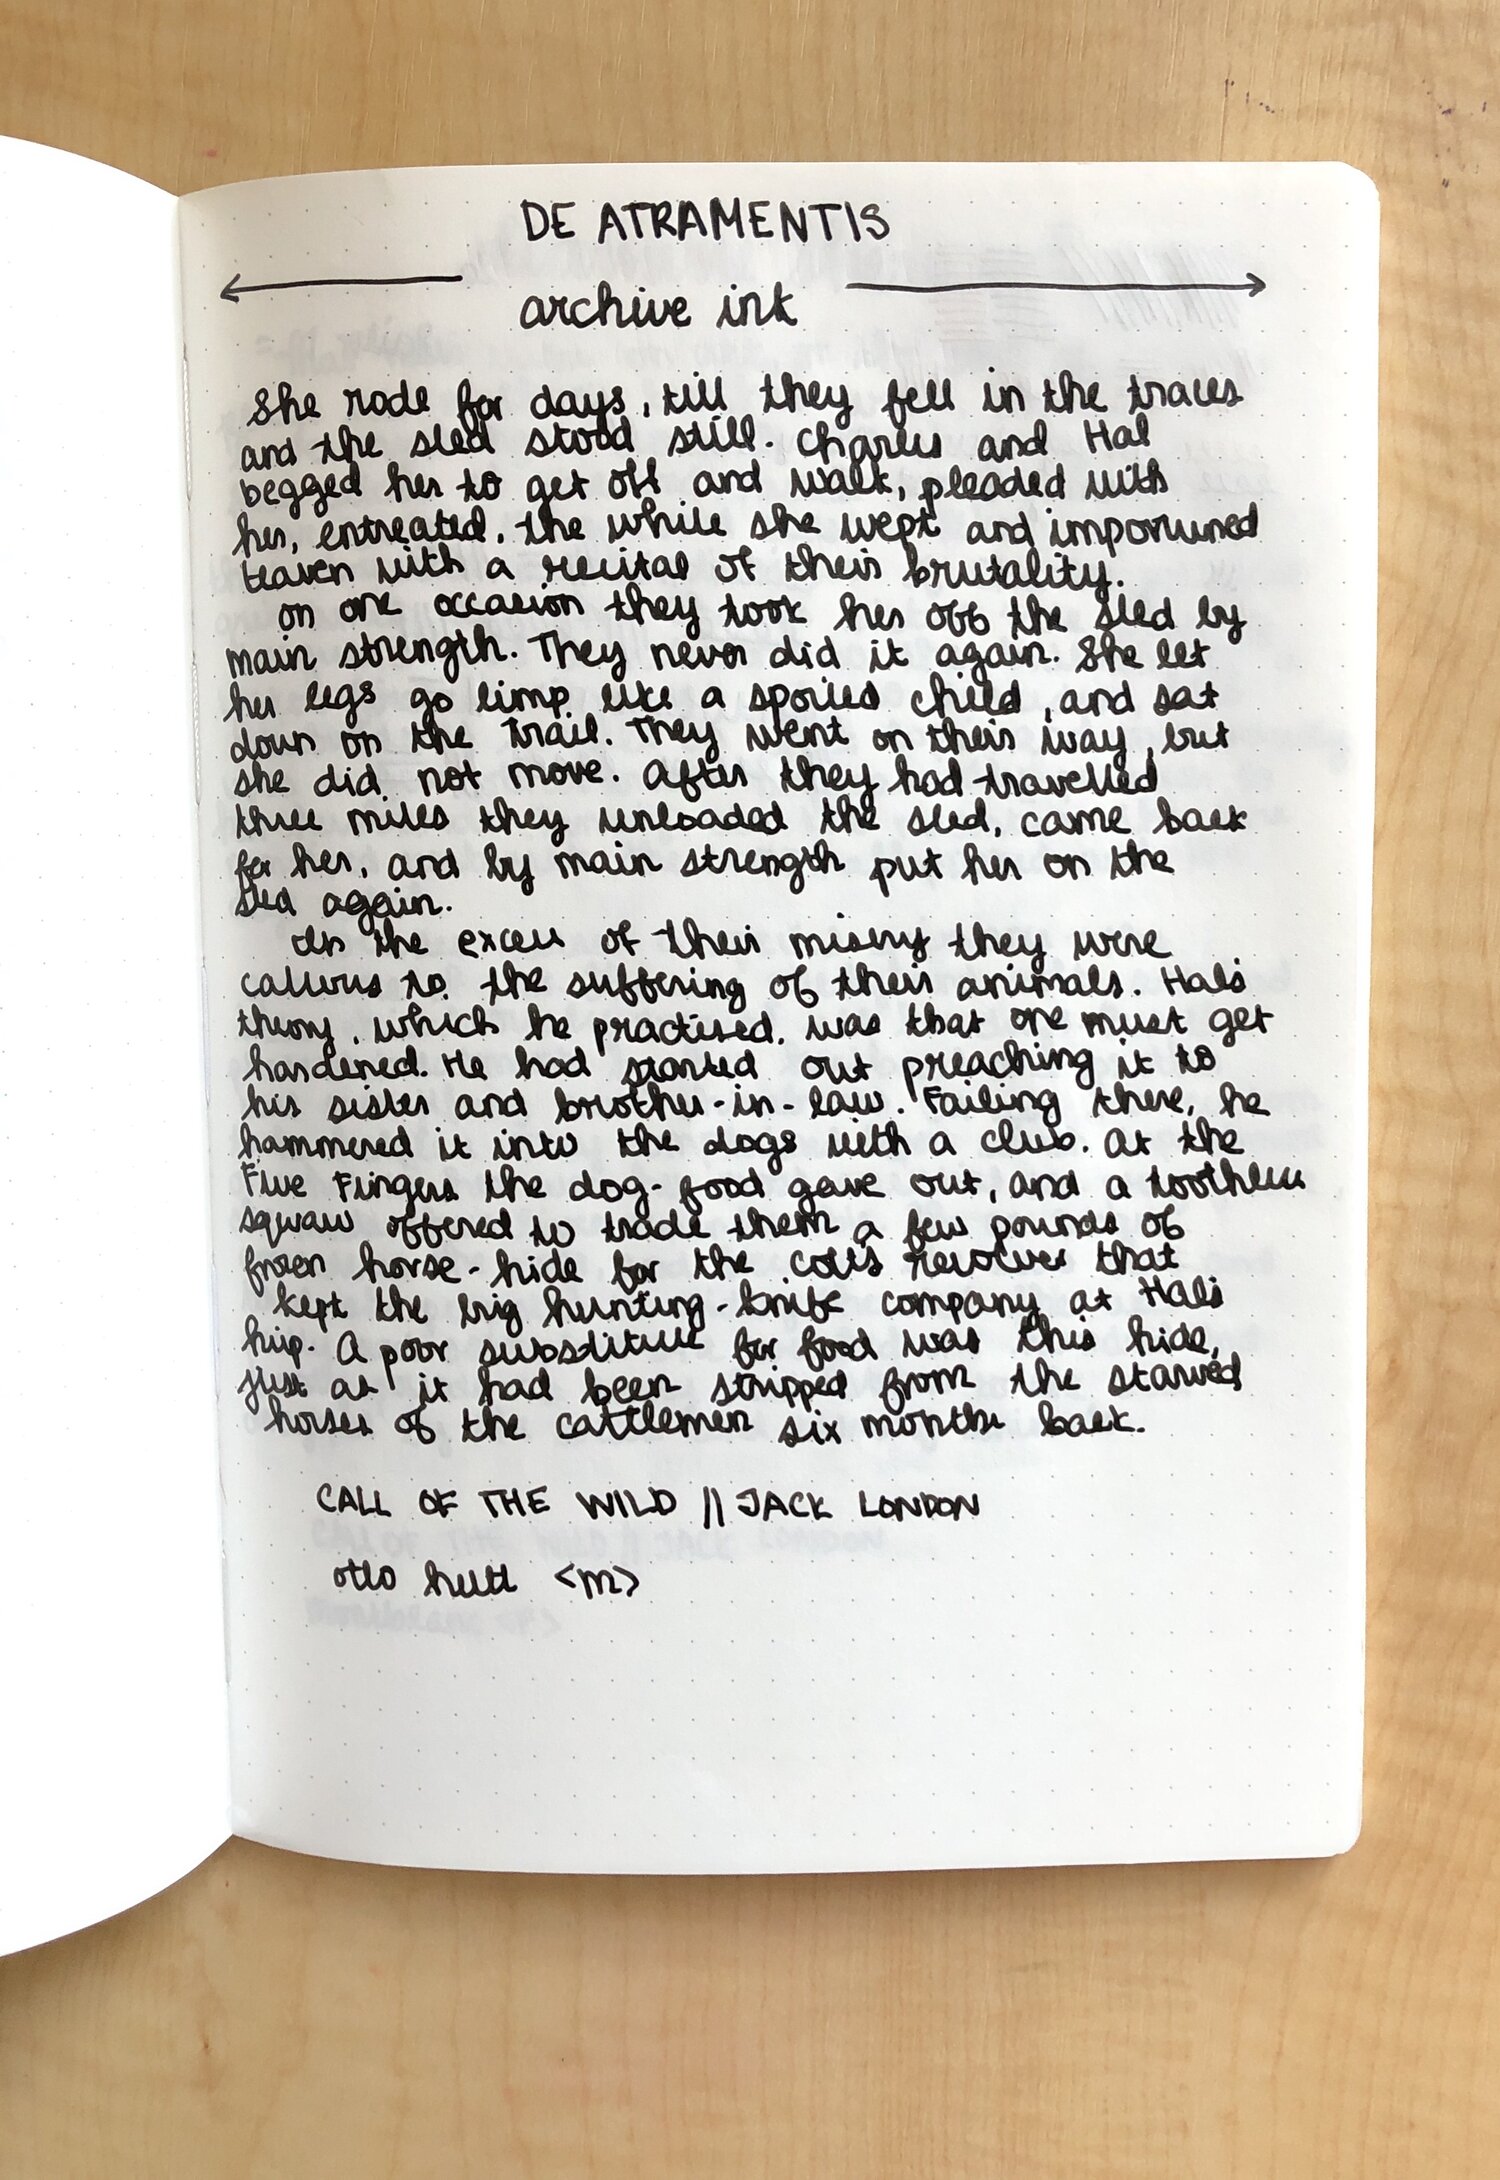 DE ATRAMENTIS
archive ink
She rode for days, till they fell in the traces
and the sled stood still. Charles and Hal
begged her to get off and walk, pleaded with
her, entreated, the while she wept and importuned
Heaven with a recital of their brutality.
On one occasion they took her off the sled by
main strength. They never did it again. She let
her legs go limp like a spoiled child, and sat
down on the trail. They went on their way, but
she did not move. After they had travelled
three miles they unloaded the sled, came back
for her, and by main strength put her on the
sled again.
In the excess of their misery they were
callous to the suffering of their animals. Hal's
theory, which he practised, was that one must get
hardened. He had started out preaching it to
his sister and brother-in-law. Failing there, he
hammered it into the dogs with a club. At the
Five Fingers the dog-food gave out, and a toothless
squaw offered to trade them a few pounds of
frozen horse-hide for the Colt's revolver that
kept the big hunting-knife company at Hal's
hip. A poor substitute for food was this hide,
just as it had been stripped from the starved
horses of the cattlemen six months back.
CALL OF THE WILD // JACK LONDON
otto hutt <m>